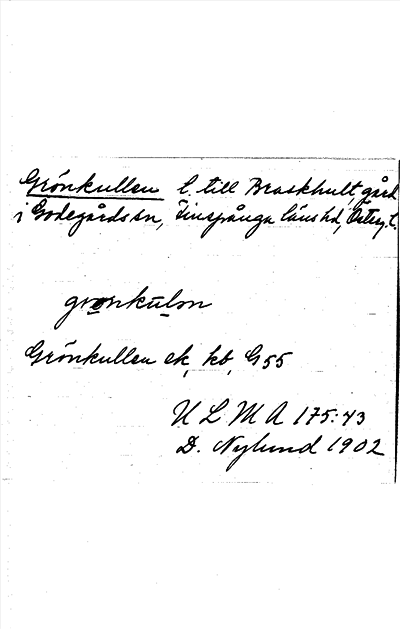 Grönkullen l. till Braskhult, gård
i Godegårds sn, Finspånga läns hd, Österg. l.
grønkulən
Grönkullen ek, kb, G55
ULMA 175:43
D. Nylund 1902